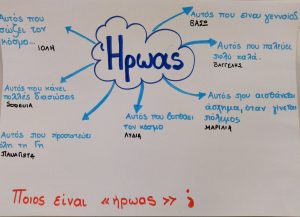 Αυτός που
σώζει τον
κόσμο...
ΙΟΛΗ
Ήρωας
Αυτός που είναι γενναίος
ΒΑΣΩ
Αυτός που παλεύει
πολύ καλά.
ΒΑΓΓΕΛΗΣ
Αυτός που κάνει
πολλές διασώσεις
Αυτός που αισθάνεται
άσχημα, όταν γίνεται
πόλεμος
ΜΑΡΙΛΙΑ
Αυτός που προστατεύει
όλη τη Γη
ΠΑΝΑΓΙΩΤΑ
Αυτός που βοηθάει
τον κόσμο
ΛΥΔΙΑ
Ποιος είναι «ήρωας» ;